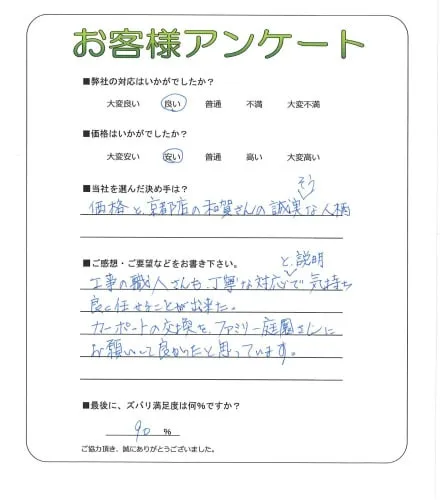 お客様アンケート
■弊社の対応はいかがでしたか？
大変良い 良い 普通 不満 大変不満
■価格はいかがでしたか？
大変安い 安い 普通 高い 大変高い
■当社を選んだ決め手は？
そう
価格と、京都店の和賀さんの誠実な人柄
■ご感想・ご要望などをお書き下さい。
と、説明
工事の職人さんも、丁寧な対応で気持ち
良く任せることが出来た。
カーポートの交換を、ファミリー庭園さんに
お願いして良かったと思っています。
■最後に、ズバリ満足度は何%ですか？
90 %
ご協力頂き、誠にありがとうございました。